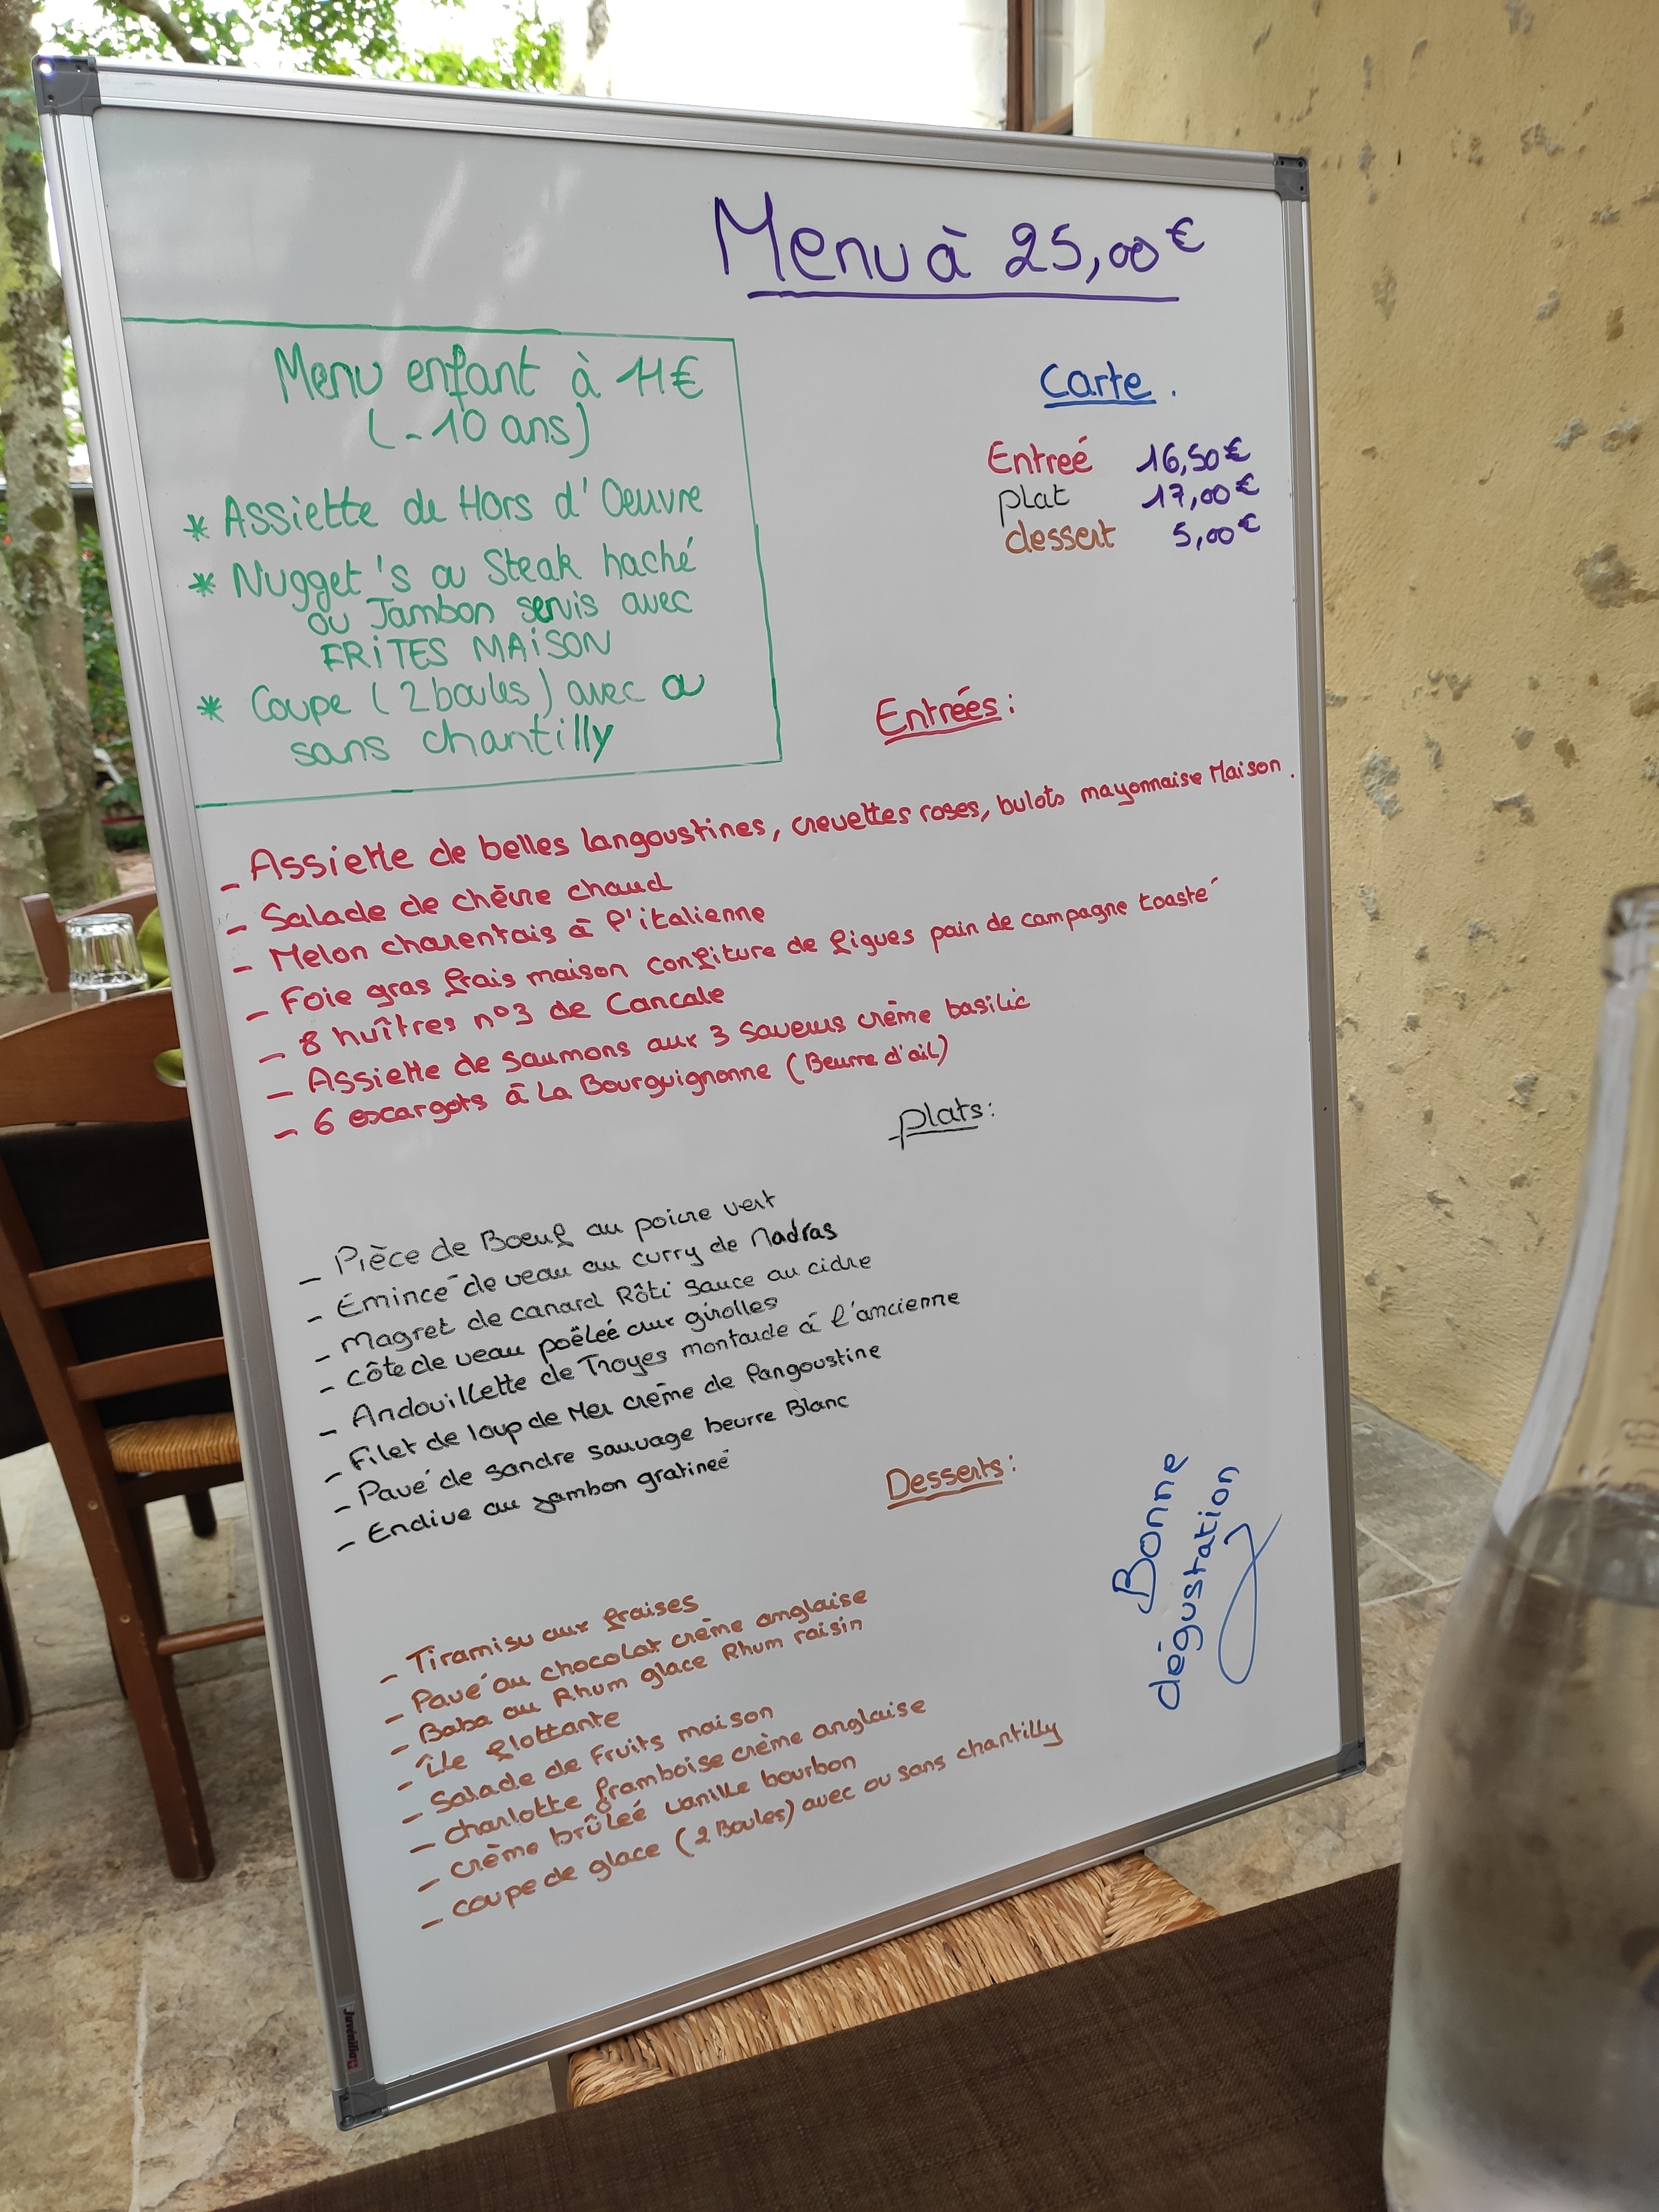 Menu à 25,00€
Menu enfant à 11€
(-10 ans)
* Assiette de Hors d'Oeuvre
* Nugget's ou Steak haché
ou Jambon servis avec
FRiTES MAiSON
* Coupe (2 boules) avec ou
sans chantilly
Carte.
Entreé 16,50€
plat 17,00€
dessert 5,00€
Entrées:
- Assiette de belles langoustines, crevettes roses, bulots mayonnaise Maison.
- Salade de chèvre chaud
- Melon charentais à l'italienne
- Foie gras frais maison confiture de figues pain de campagne toasté
- 8 huîtres n°3 de Cancale
- Assiette de saumons aux 3 saveurs crème basilic
- 6 escargots à La Bourguignonne (Beurre d'ail)
plats:
- Pièce de Boeuf au poivre vert
- Émincé de veau au curry de Madras
- Magret de canard Rôti sauce au cidre
- côte de veau poêleé aux girolles
- Andouillette de Troyes moutarde à l'ancienne
- Filet de loup de Mer crème de langoustine
- Pavé de sandre sauvage beurre Blanc
- Endive au jambon gratineé
Desserts:
- Tiramisu aux fraises
- Pavé au chocolat crème anglaise
- Baba au Rhum glace Rhum raisin
- île flottante
- Salade de Fruits maison
- charlotte framboise crème anglaise
- crème brûleé vanille bourbon
- coupe de glace (2 Boules) avec ou sans chantilly
Bonne
dégustation